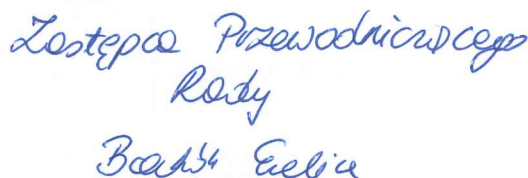 Zastępca Przewodniczącego
Rady
Ewelina